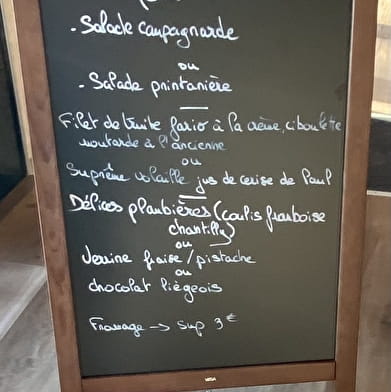 - Salade campagnarde
ou
- Salade printanière
Filet de truite fario à la crème, ciboulette
moutarde à l'ancienne
ou
Suprême volaille jus de cerise de Paul
Délices plombières (coulis framboise
chantilly)
ou
Verrine fraise / pistache
ou
chocolat liégeois
Fromage → sup 3€
VEGA